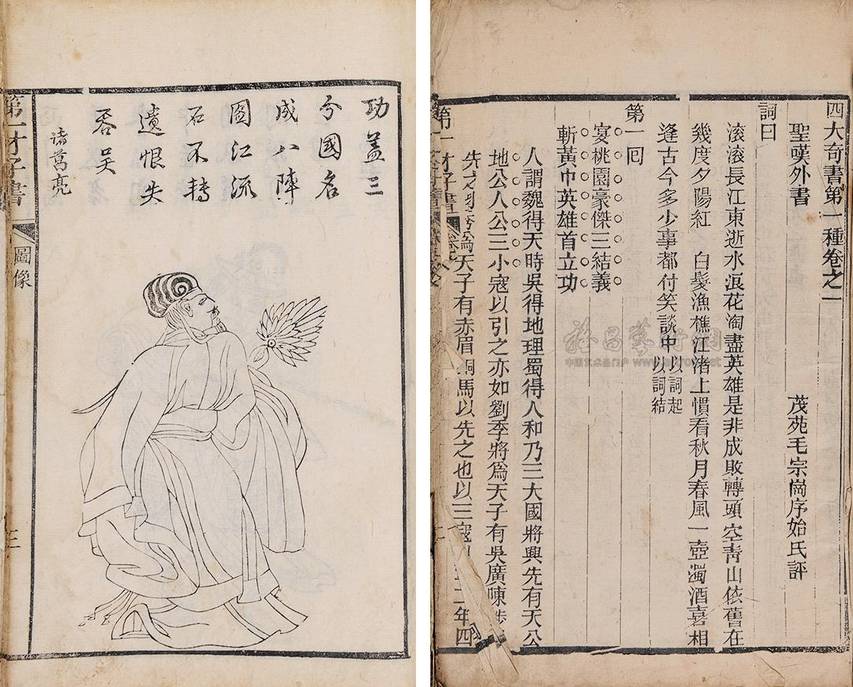 功蓋三
分國名
成八陣
圖江流
石不轉
遺恨失
吞吳
諸葛亮
第一才子書
圖像
四大奇書第一種卷之一
聖嘆外書 茂苑毛宗崗序始氏評
詞曰
滾滾長江東逝水浪花淘盡英雄是非成敗轉頭空青山依舊在
幾度夕陽紅 白髮漁樵江渚上慣看秋月春風一壺濁酒喜相
逢古今多少事都付笑談中 以詞起
以詞結
第一囘
宴桃園豪傑三結義
斬黃巾英雄首立功
人謂魏得天時吳得地理蜀得人和乃三大國將興先有天公
地公人公三小寇以引之亦如劉季將爲天子有吳廣陳涉
先之 爲天子有赤眉銅馬以先之也以三寇 年四
第一才子書